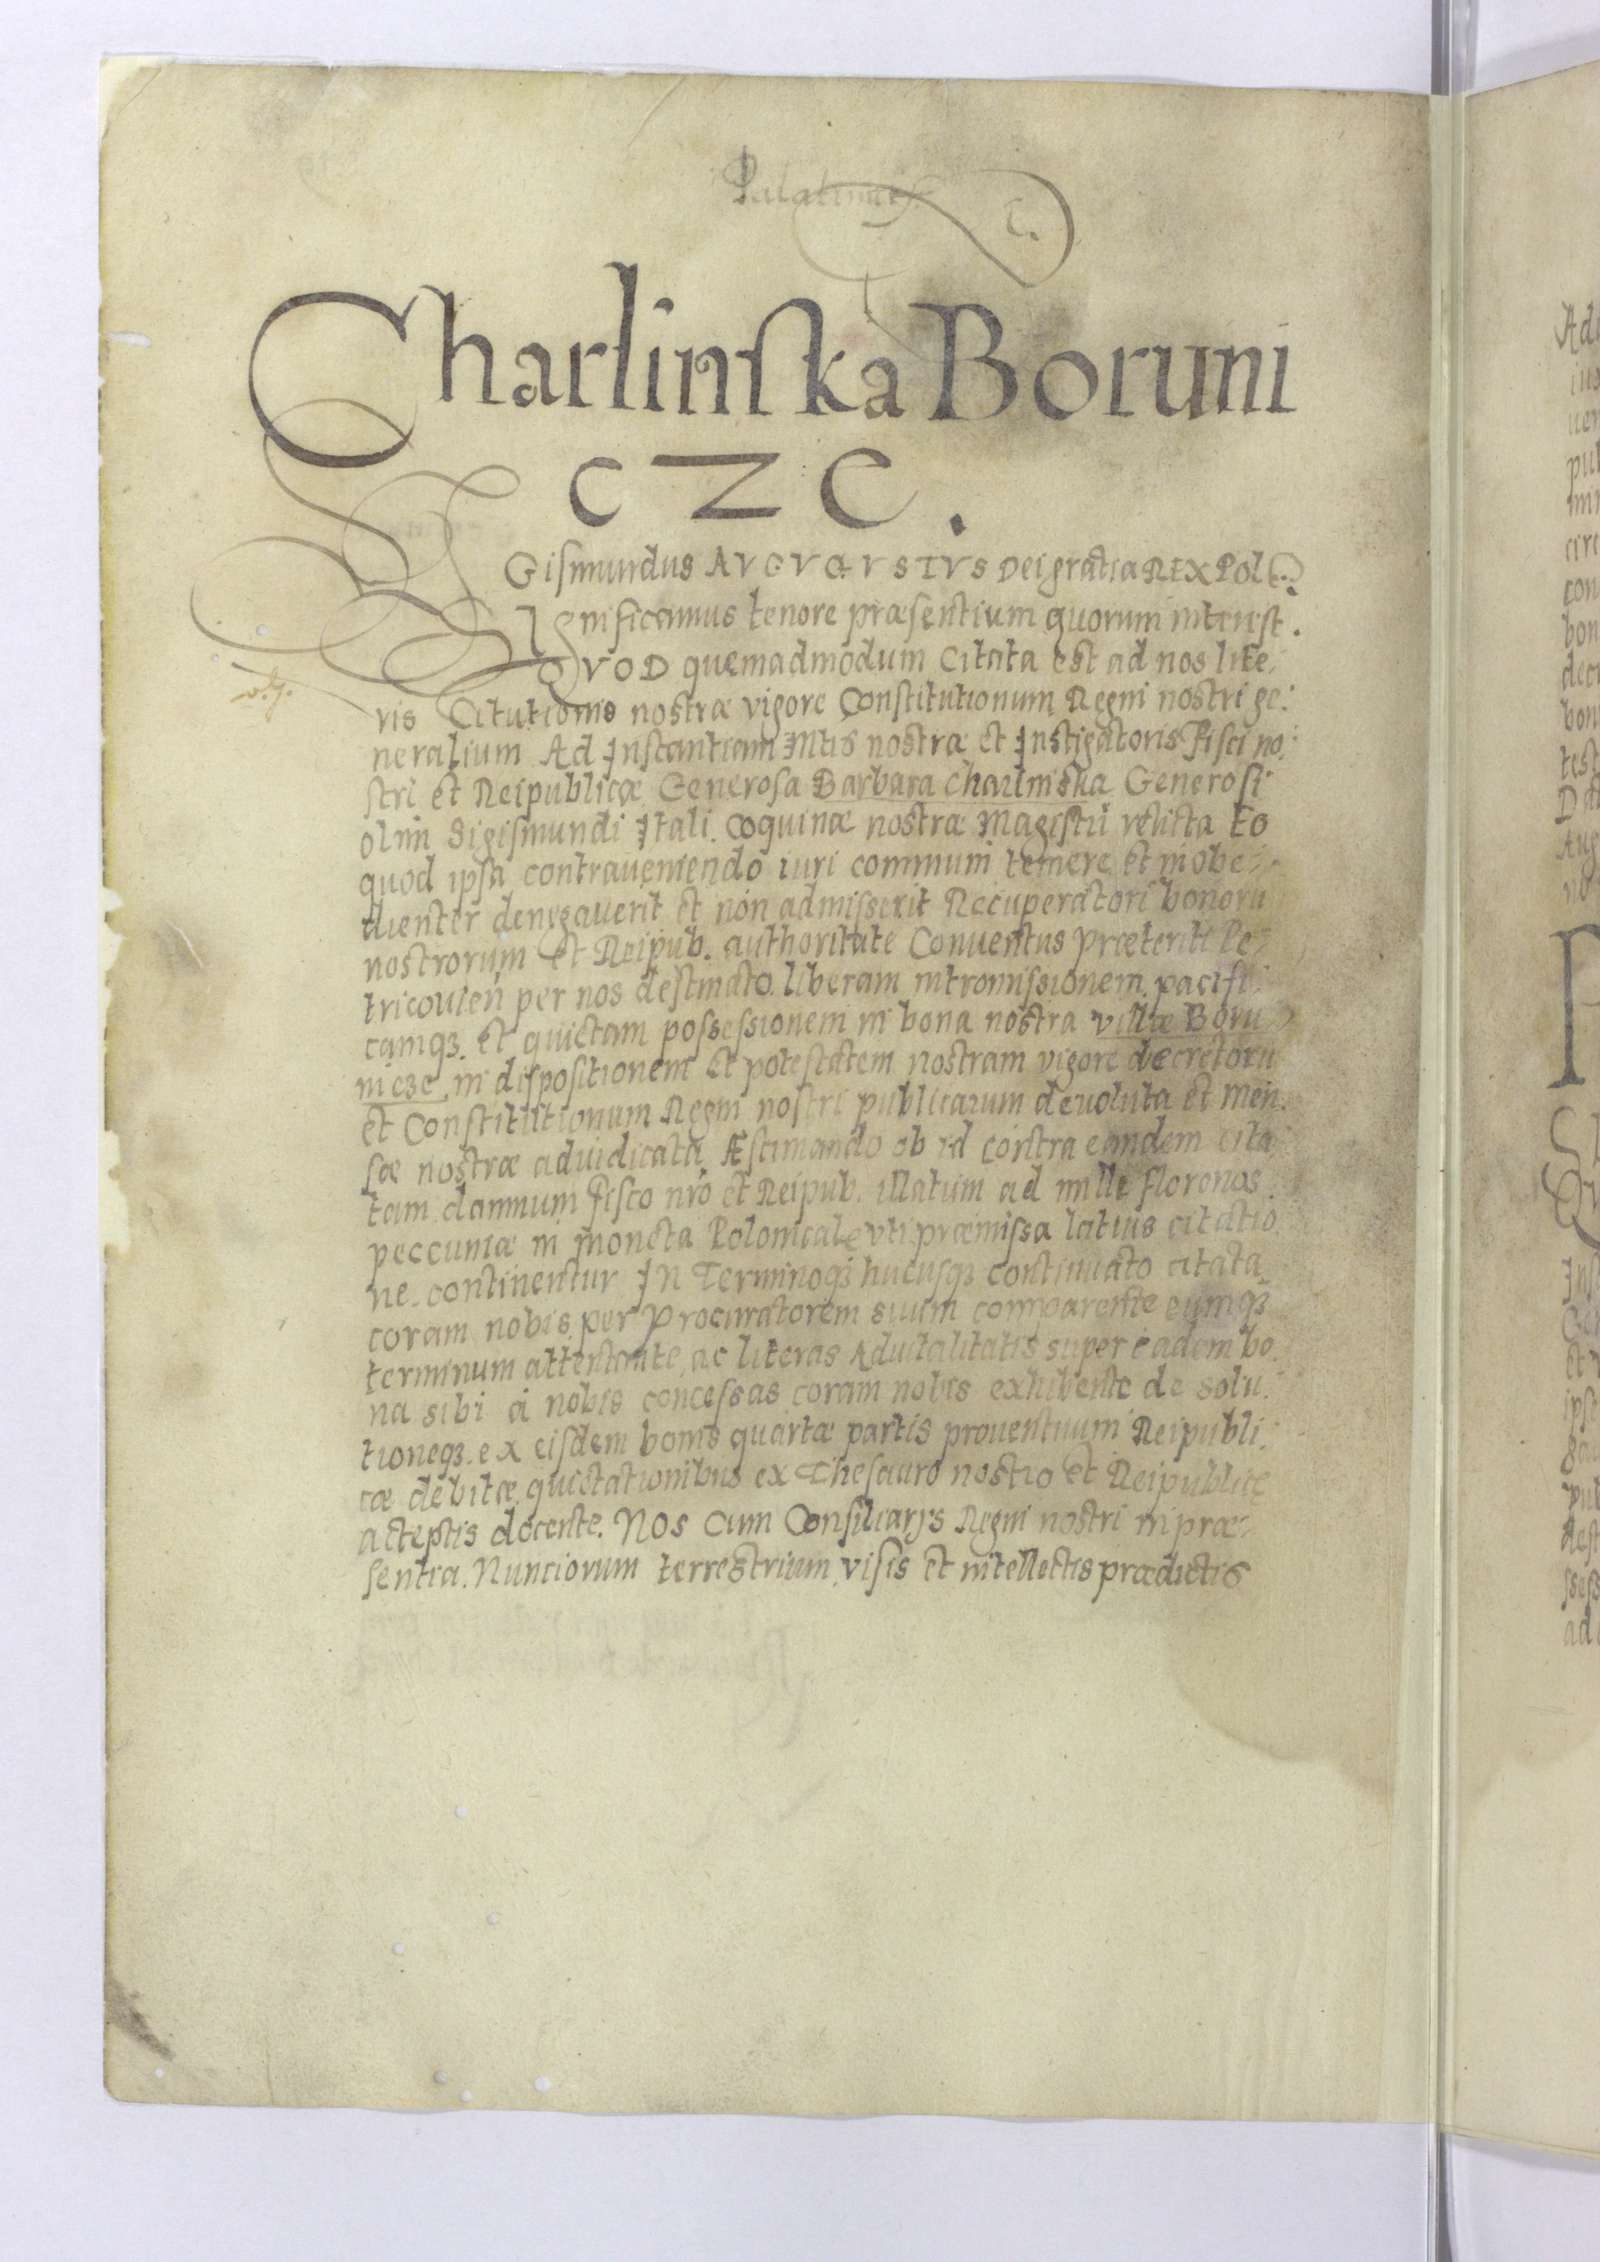 Palatinus C.
Charlinska Boruni
cze.
Gismundus AVGVGVSTVS Dei gratia REX Pol
Significamus tenore præsentium quorum interest.
QVOD quemadmodum Citata est ad nos lite
ris Citationis nostræ vigore Constitutionum Regni nostri ge:
neralium Ad Instantiam Mtis nostræ et Instigatoris Fisci no:
stri et Reipublicæ Generosa Barbara Charlinska Generosi
olim Sigismundi Itali Coquinæ nostræ Magistri relicta Eo
quod ipsa contraveniendo iuri communi temere et inobe
dienter denegaverit et non admisserit Recuperatori bonoru
nostrorum et Reipub. authoritate Conventus præteriti Pe
tricovien per nos destinato liberam intromissionem pacifi
camq3 et quietam possessionem in bona nostra villæ Boru
nicze in dispositionem et potestatem nostram vigore decretoru
et Constitutionum Regni nostri publicarum devoluta et men
sæ nostræ adiudicata, Æstimando ob id contra eandem cita
tam damnum fisco nro et Reipub. illatum ad mille florenos
peccuniæ in moneta Polonicale vti præmissa latius citatio
ne continentur In Terminoq3 hucusq3 continuato citata
coram nobis per Procuratorem suum comparente eumq3
terminum attentante, ac literas Advitalitatis super eadem bo.
na sibi à nobis concessas coram nobis exhibente de solu.
tioneq3 ex eisdem bonis quartæ partis proventuum Reipubli.
cæ debitæ quietationibus ex Thesauro nostro et Reipublicæ
acceptis docente. Nos Cum Consiliarijs Regni nostri in præ
sentia Nunciorum terrestrium visis et intellectis prædictis